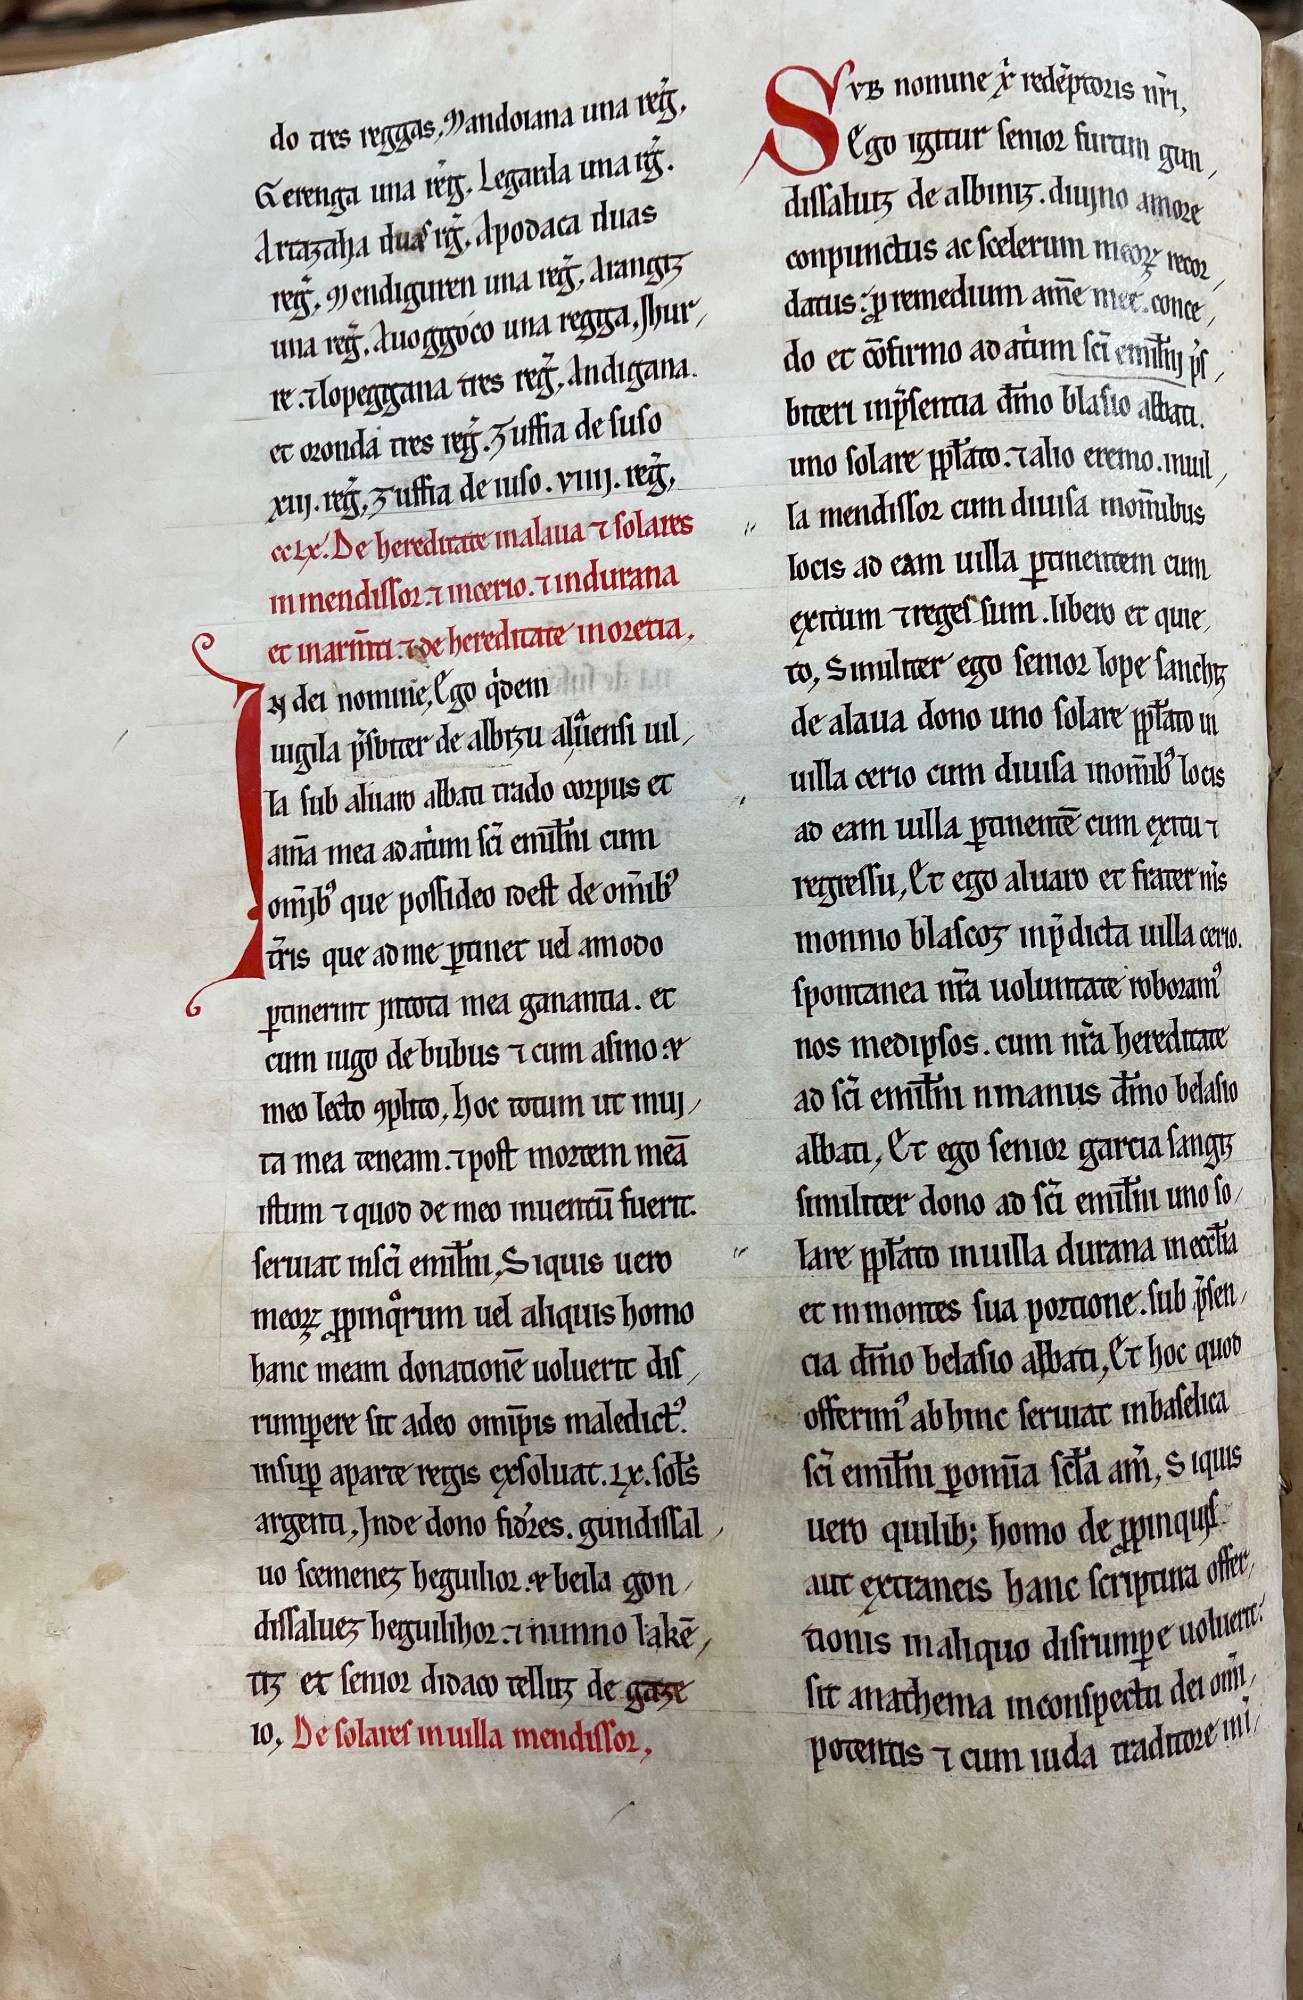 do tres reggas, Mandoiana una reg̃,
Gerenga una reg̃. Legarda una rg̃.
Artazaha duas rg̃, Apodaca duas
reg̃, Mendiguren una reg̃, Arangiz
una reg̃, Auoggoco una regga, Jhur/
re. ⁊ lopeggana tres reg̃, Andigana.
et oronda tres reg̃. Zuffia de suso
xiij. reg̃, zuffia de iuso. viiij. reg̃,
ccLx. De hereditate in alaua ⁊ solares
in mendissor. ⁊ in cerio. ⁊ in durana
et in arm̃ti. ⁊ de hereditate in oretia,
IN dei nomine, Ego q̇dem
uigila p̃sbiter de albizu aluensi uil/
la sub aluaro abbati trado corpus et
am̃a mea ad atriũm sc̃i emil̃ni cum
om̃ibꝰ que possideo idest de om̃ibꝰ
t̃ris que ad me ꝑtinet uel amodo
ꝑtinerint Jn tota mea ganantia. et
cum iugo de bubus ⁊ cum asino. &
meo lecto ꝯplito, hoc totum ut in uj/
ta mea teneam. ⁊ post mortem meã
istum ⁊ quod de meo inuentũ fuerit.
seruiat in sc̃i emil̃ni, Siquis uero
meoꝝ ꝓpinqͦrum uel aliquis homo
hanc meam donationẽ uoluerit dis/
rumpere sit a deo omĩp̃is maledictꝰ.
insuꝑ a parte regis exsoluat. Lx. sol̃s
argenti, Jnde dono fiđres. gundissal/
uo scemenez heguilior. & beila gon/
dissaluez heguilihor. ⁊ nunno lakẽ/
tiz et senior didaco telluz de gaze
io, De solares in uilla mendissor,
SVB nomine xp̃i redẽptoris nr̃i,
Ego igitur senior furtun gun/
dissaluiz de albiniz. diujno amore
conpunctus ac scelerum meoꝝ recor/
datus: ꝓ remedium am̃e mee. conce/
do et cõfirmo ad atriũm sc̃i emil̃nij p̃s/
biteri in p̃sentia dm̃o blasio abbati.
uno solare ppl̃ato. ⁊ alio eremo. in uil/
la mendissor cum diuisa in om̃nibus
locis ad eam uilla ꝑtinentem cum
exitum ⁊ reges sum. libero et quie/
to, Similiter ego senior lope sanchiz
de alaua dono uno solare ppl̃ato in
uilla cerio cum diuisa in om̃ibꝰ locis
ad eam uilla ꝑtinentẽ cum exitu ⁊
regressu, Et ego aluaro et frater m̃s
monnio blascoz in p̃dicta uilla cerio.
spontanea nr̃a uoluntate roboramꝰ
nos medipsos. cum nr̃a hereditate
ad sc̃i emil̃ni n manus dm̃o belasio
abbati, Et ego senior garcia sangiz
similiter dono ad sc̃i emil̃ni uno so/
lare ppl̃ato in uilla durana in eccl̃ia
et in montes sua portione. sub p̃sen/
cia dm̃o belasio abbati, Et hoc quod
offerimꝰ ab hinc seruiat in baselica
sc̃i emil̃ni ꝑ om̃ia scl̃a am̃, Siquis
uero quilibꝫ homo de ꝓpinquis
aut extraneis hanc scriptura offer/
tionis in aliquo disrumpe uoluerit:
sit anathema in conspectu dei om̃i/
potentis ⁊ cum iuda traditore in i/